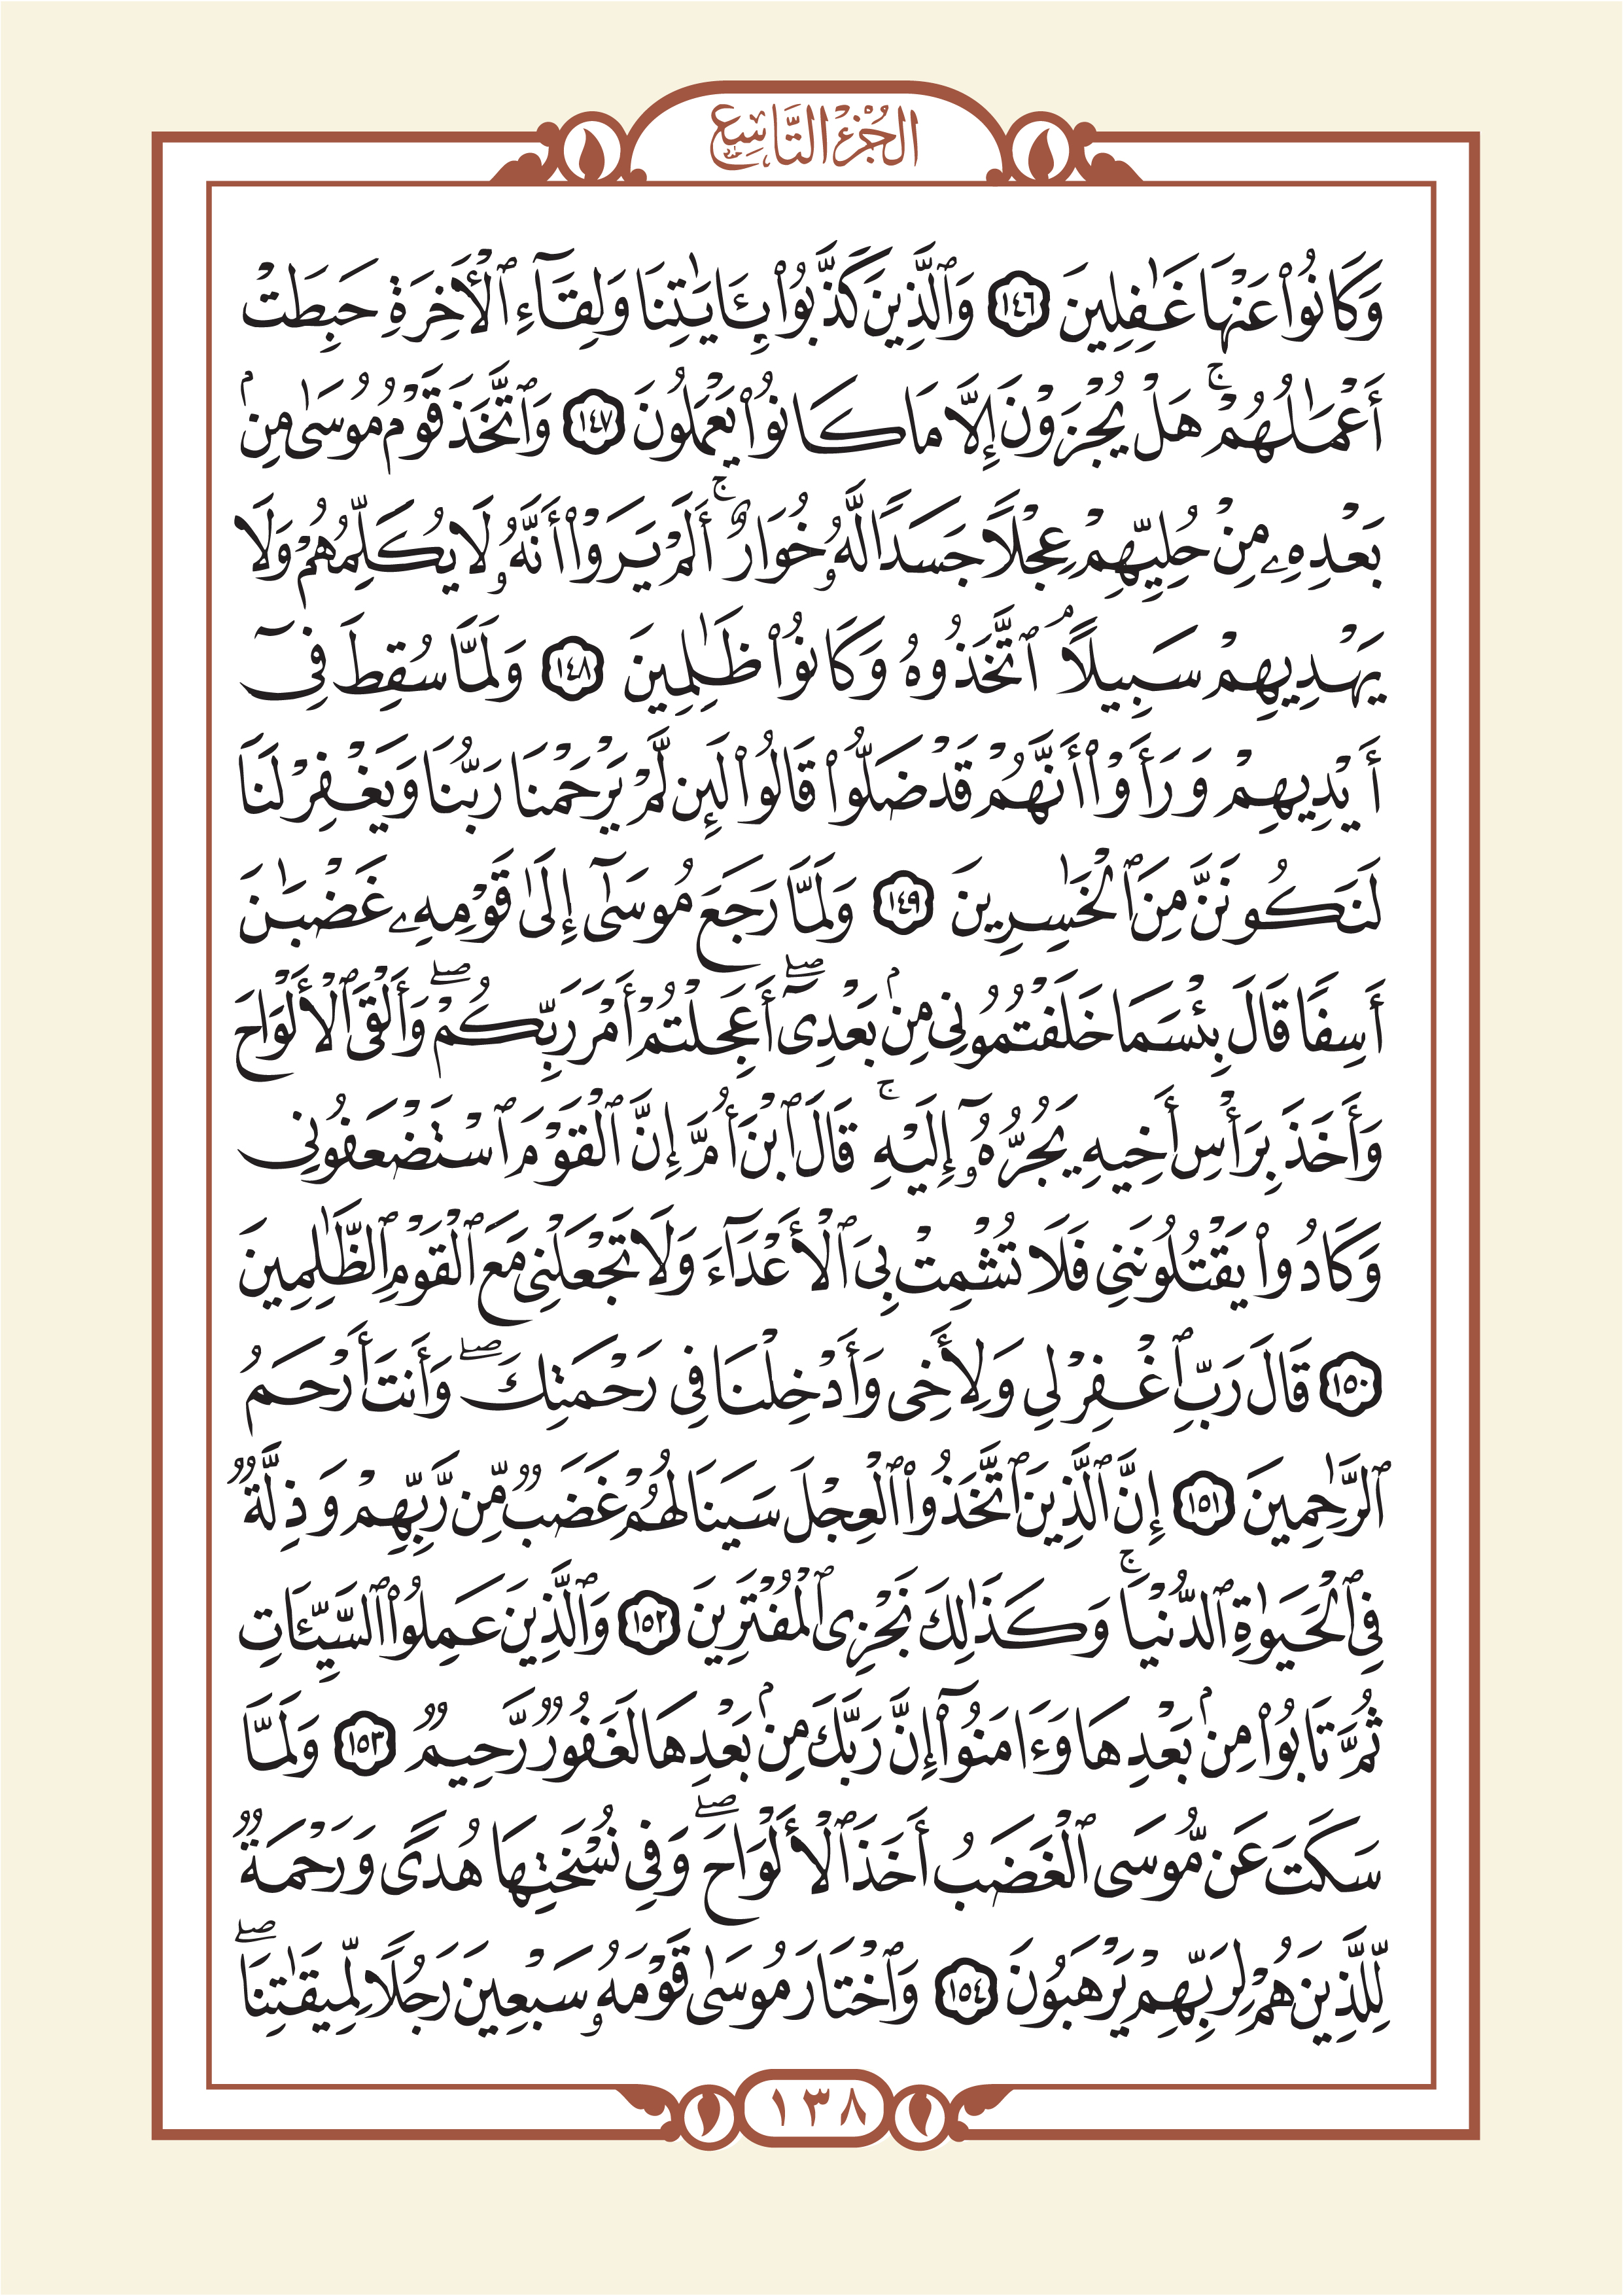 الجُزْءُ التَّاسِع
وَكَانُوا۟ عَنْهَا غَٰفِلِينَ ١٤٦ وَٱلَّذِينَ كَذَّبُوا۟ بِـَٔايَٰتِنَا وَلِقَآءِ ٱلْأَخِرَةِ حَبِطَتْ
أَعْمَٰلُهُمْ ۚ هَلْ يُجْزَوْنَ إِلَّا مَا كَانُوا۟ يَعْمَلُونَ ١٤٧ وَٱتَّخَذَ قَوْمُ مُوسَىٰ مِنۢ
بَعْدِهِۦ مِنْ حُلِيِّهِمْ عِجْلًا جَسَدًا لَّهُۥ خُوَارٌ ۚ أَلَمْ يَرَوْا۟ أَنَّهُۥ لَا يُكَلِّمُهُمْ وَلَا
يَهْدِيهِمْ سَبِيلًا ۘ ٱتَّخَذُوهُ وَكَانُوا۟ ظَٰلِمِينَ ١٤٨ وَلَمَّا سُقِطَ فِىٓ
أَيْدِيهِمْ وَرَأَوْا۟ أَنَّهُمْ قَدْ ضَلُّوا۟ قَالُوا۟ لَئِن لَّمْ يَرْحَمْنَا رَبُّنَا وَيَغْفِرْ لَنَا
لَنَكُونَنَّ مِنَ ٱلْخَٰسِرِينَ ١٤٩ وَلَمَّا رَجَعَ مُوسَىٰٓ إِلَىٰ قَوْمِهِۦ غَضْبَٰنَ
أَسِفًا قَالَ بِئْسَمَا خَلَفْتُمُونِى مِنۢ بَعْدِىٓ ۖ أَعَجِلْتُمْ أَمْرَ رَبِّكُمْ ۖ وَأَلْقَى ٱلْأَلْوَاحَ
وَأَخَذَ بِرَأْسِ أَخِيهِ يَجُرُّهُۥٓ إِلَيْهِ ۚ قَالَ ٱبْنَ أُمَّ إِنَّ ٱلْقَوْمَ ٱسْتَضْعَفُونِى
وَكَادُوا۟ يَقْتُلُونَنِى فَلَا تُشْمِتْ بِىَ ٱلْأَعْدَآءَ وَلَا تَجْعَلْنِى مَعَ ٱلْقَوْمِ ٱلظَّٰلِمِينَ
١٥٠ قَالَ رَبِّ ٱغْفِرْ لِى وَلِأَخِى وَأَدْخِلْنَا فِى رَحْمَتِكَ ۖ وَأَنتَ أَرْحَمُ
ٱلرَّٰحِمِينَ ١٥١ إِنَّ ٱلَّذِينَ ٱتَّخَذُوا۟ ٱلْعِجْلَ سَيَنَالُهُمْ غَضَبٌ مِّن رَّبِّهِمْ وَذِلَّةٌ
فِى ٱلْحَيَوٰةِ ٱلدُّنْيَا ۚ وَكَذَٰلِكَ نَجْزِى ٱلْمُفْتَرِينَ ١٥٢ وَٱلَّذِينَ عَمِلُوا۟ ٱلسَّيِّـَٔاتِ
ثُمَّ تَابُوا۟ مِنۢ بَعْدِهَا وَءَامَنُوٓا۟ إِنَّ رَبَّكَ مِنۢ بَعْدِهَا لَغَفُورٌ رَّحِيمٌ ١٥٣ وَلَمَّا
سَكَتَ عَن مُّوسَى ٱلْغَضَبُ أَخَذَ ٱلْأَلْوَاحَ ۖ وَفِى نُسْخَتِهَا هُدًى وَرَحْمَةٌ
لِّلَّذِينَ هُمْ لِرَبِّهِمْ يَرْهَبُونَ ١٥٤ وَٱخْتَارَ مُوسَىٰ قَوْمَهُۥ سَبْعِينَ رَجُلًا لِّمِيقَٰتِنَا ۖ
١٣٨